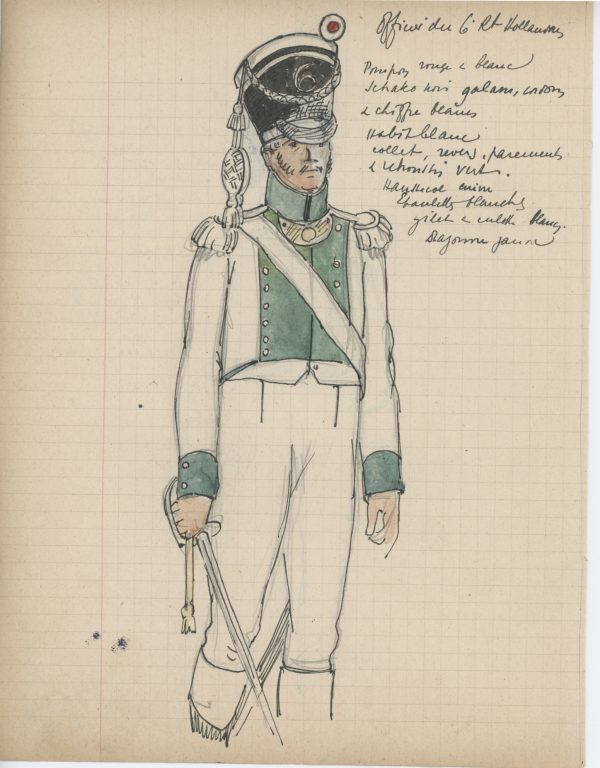 Officier du 6e Rt Hollandais
Pompon rouge & blanc
Schako noir galons, cordons
& chiffre blancs
Habit blanc
collet, revers, parements
& retroussis verts.
Hausse col
Epaulettes blanches
gilet & culotte blancs.
Dragonne jaune
6